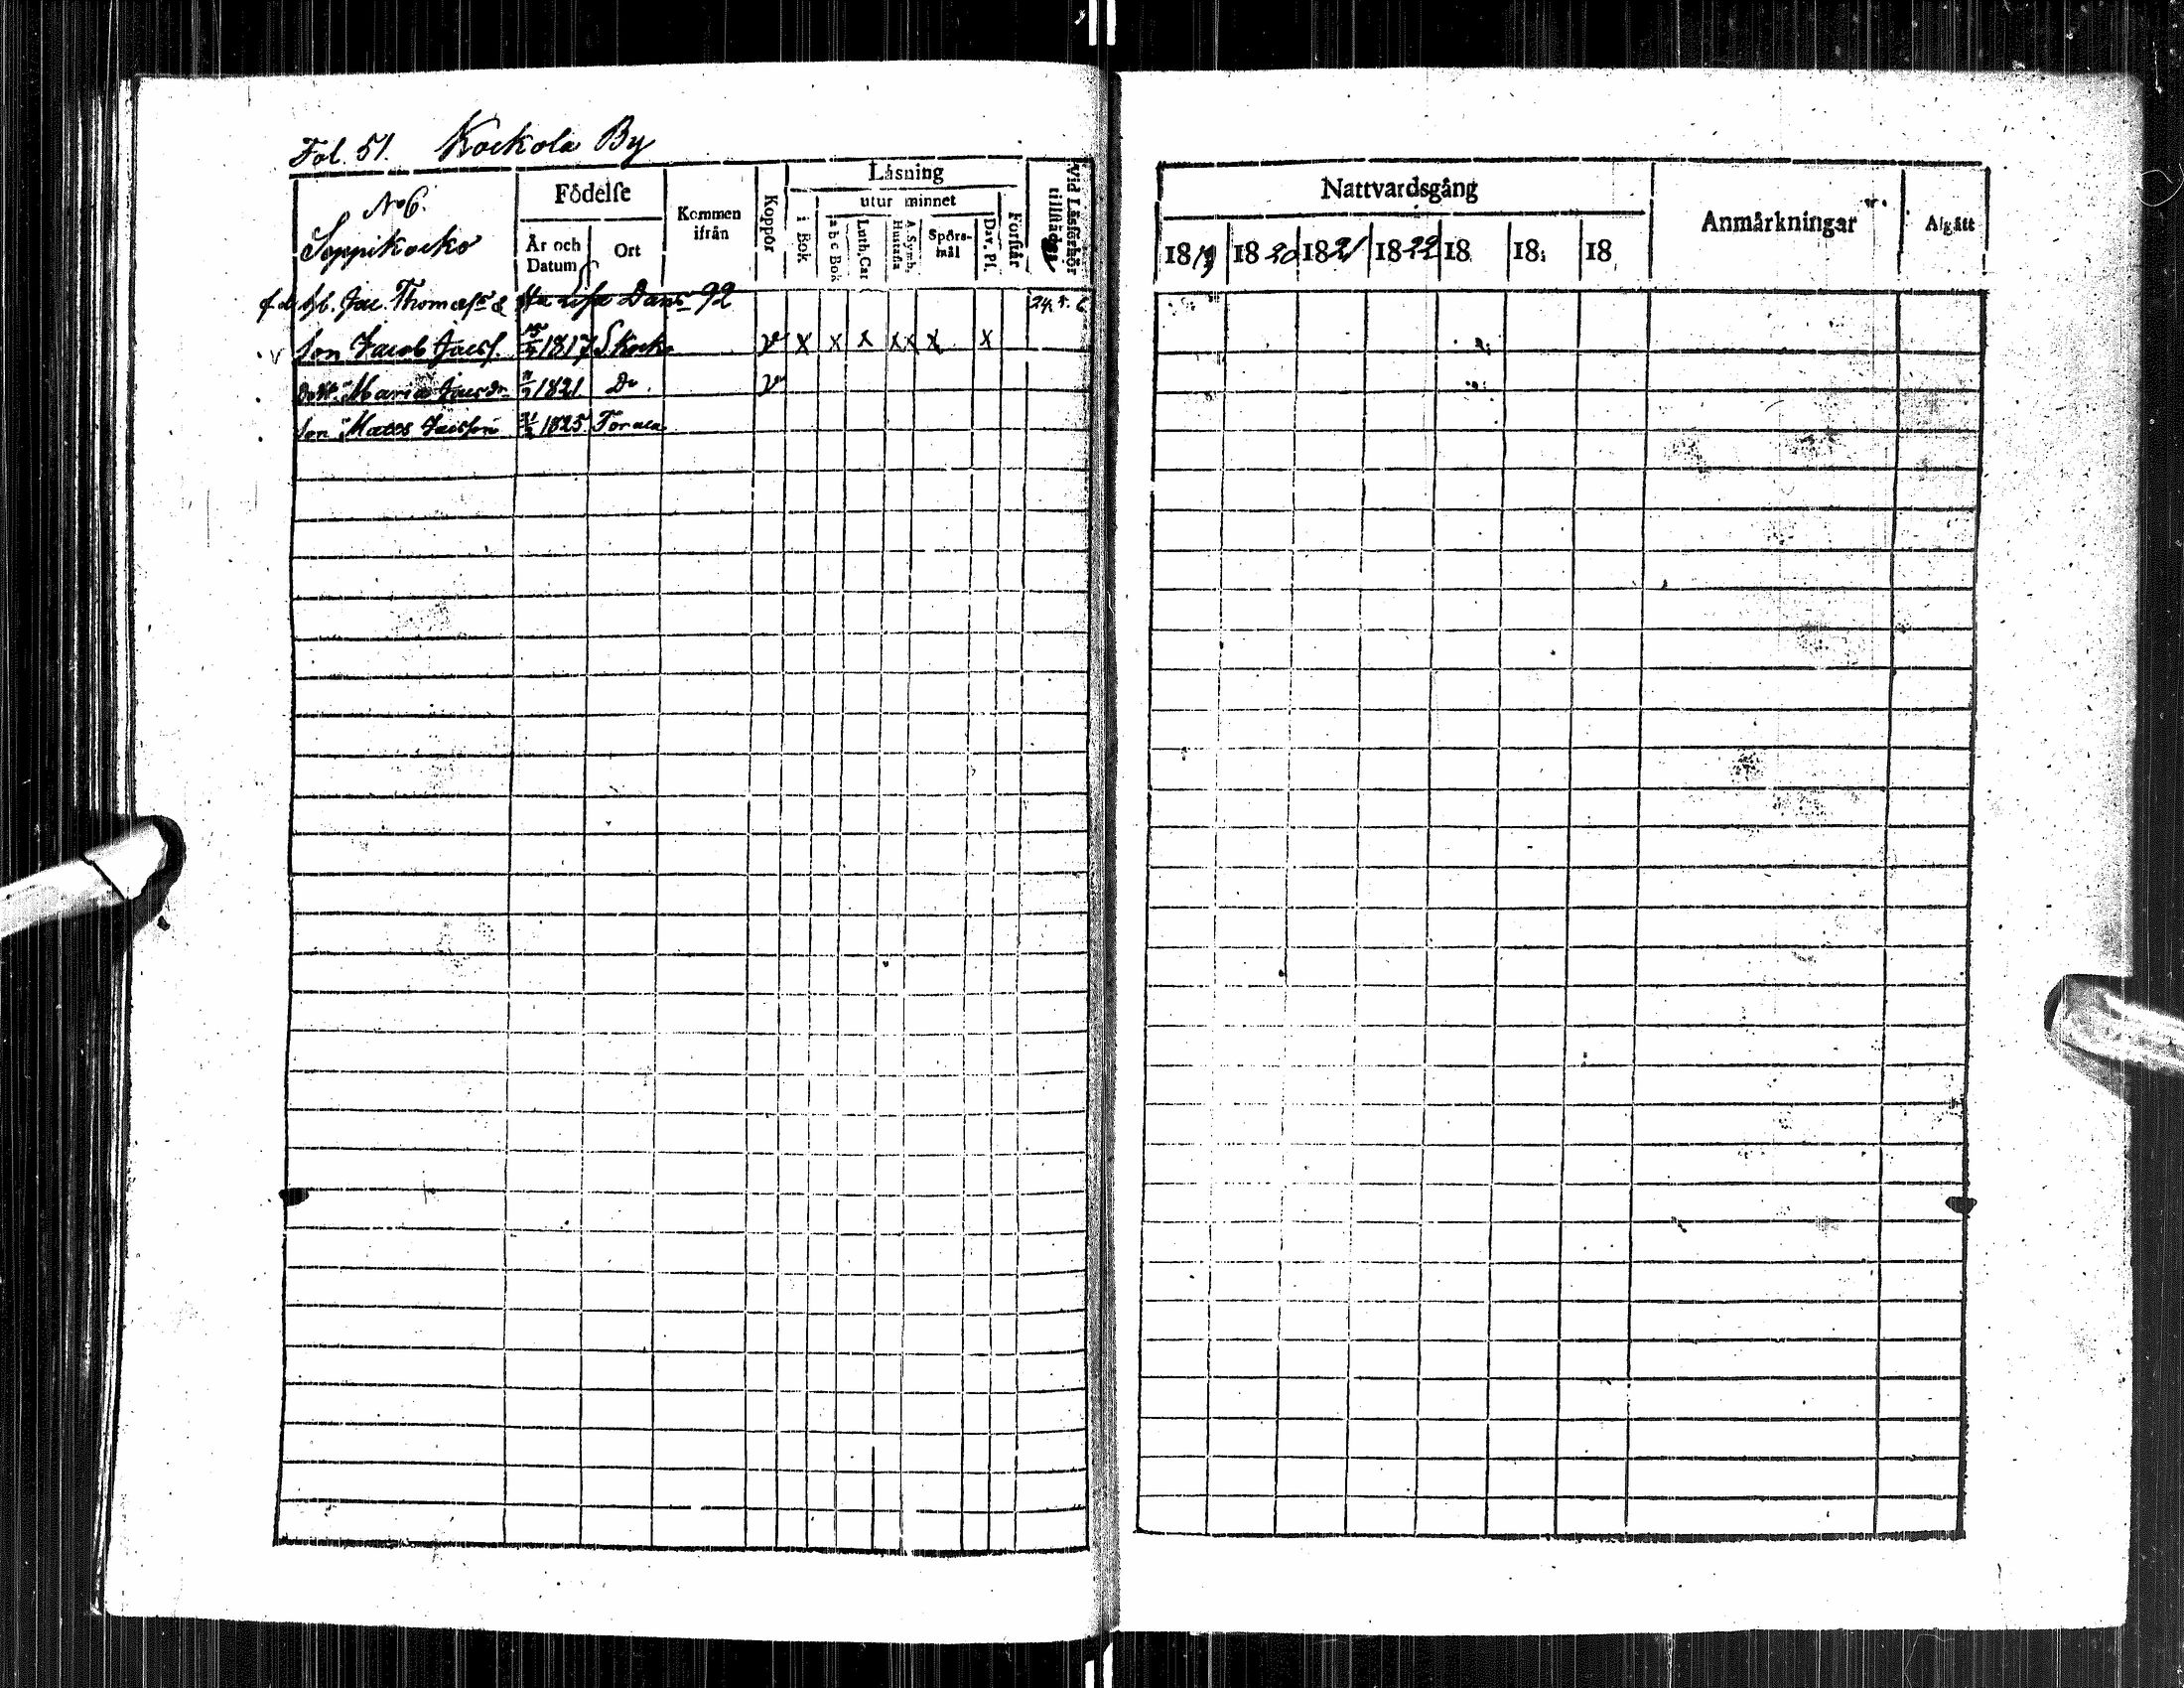 Fol. 51. Kockola By
No 6.
Soppikocko
Födelse
År och Datum
Ort
Kommen ifrån
Koppor
Läsning
i Bok
utur minnet
a b c Bok
Luth. Car
A. Symb. Hustafla
Spörsmål
Dav. Ps.
Förstår
Vid Läsförhör tillstädes
Jac. Thomass
son Jacob Jacss. 1817 Skocko v x x x x x x x
dottr Maria Jacsdr 1821 Do. v
son Matts Jacsson 1825 Forala
Nattvardsgång
1819 1820 1821 1822 18 18 18
Anmärkningar
Afgått